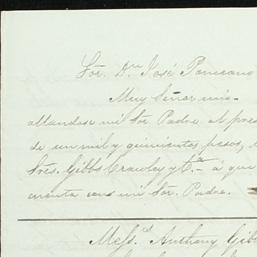 Sor. Dn. José Ponciano
Muy Señor mio.
allandose mi Sor. Padre. Al pres
de un mil y quinientos pesos,
Sres. Gibbs Crawley y Ca. á que
cuenta con mi Sor. Padre.
Messrs. Anthony Gibb